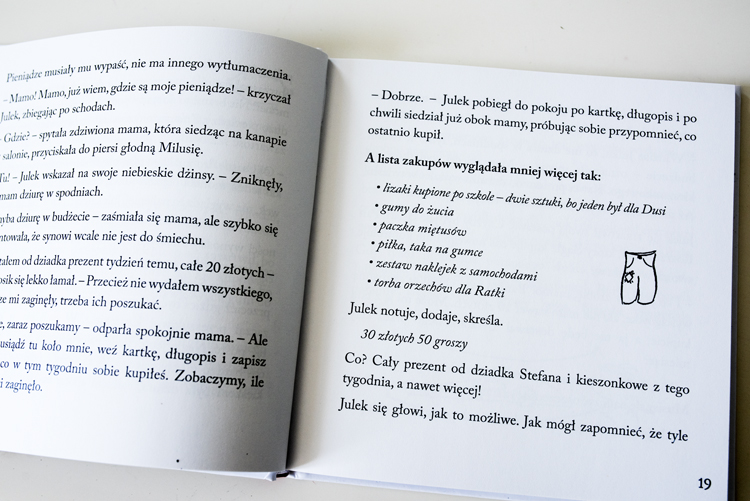 Pieniądze musiały mu wypaść, nie ma innego wytłumaczenia.
– Mamo! Mamo, już wiem, gdzie są moje pieniądze! – krzyczał
Julek, zbiegając po schodach.
Gdzie? – spytała zdziwiona mama, która siedząc na kanapie
salonie, przyciskała do piersi głodną Milusię.
Tu! – Julek wskazał na swoje niebieskie dżinsy. – Zniknęły,
mam dziurę w spodniach.
dziurę w budżecie – zaśmiała się mama, ale szybko się
że synowi wcale nie jest do śmiechu.
od dziadka prezent tydzień temu, całe 20 złotych –
się lekko łamał. – Przecież nie wydałem wszystkiego,
mi zaginęły, trzeba ich poszukać.
zaraz poszukamy – odparła spokojnie mama. – Ale
tu koło mnie, weź kartkę, długopis i zapisz
co w tym tygodniu sobie kupiłeś. Zobaczymy, ile
i zaginęło.
– Dobrze. – Julek pobiegł do pokoju po kartkę, długopis i po
chwili siedział już obok mamy, próbując sobie przypomnieć, co
ostatnio kupił.
A lista zakupów wyglądała mniej więcej tak:
• lizaki kupione po szkole – dwie sztuki, bo jeden był dla Dusi
• gumy do żucia
• paczka miętusów
• piłka, taka na gumce
• zestaw naklejek z samochodami
• torba orzechów dla Ratki
Julek notuje, dodaje, skreśla.
30 złotych 50 groszy
Co? Cały prezent od dziadka Stefana i kieszonkowe z tego
tygodnia, a nawet więcej!
Julek się głowi, jak to możliwe. Jak mógł zapomnieć, że tyle
19